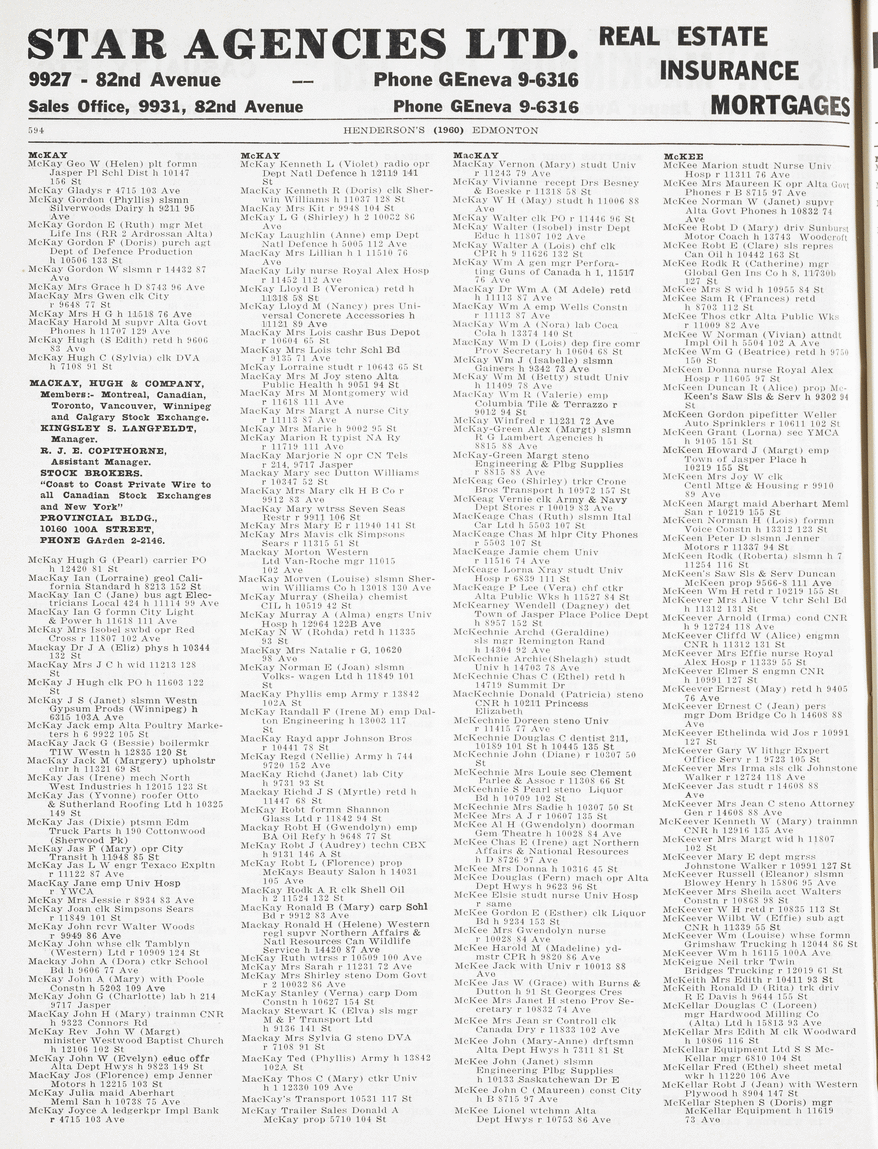 STAR AGENCIES LTD. REAL ESTATE
9927 - 82nd Avenue — Phone GEneva 9-6316 INSURANCE
Sales Office, 9931, 82nd Avenue Phone GEneva 9-6316 MORTGAGES
594 HENDERSON'S (1960) EDMONTON
McKAY
McKay Geo W (Helen) plt formn
Jasper Pl Schl Dist h 10147
156 St
McKay Gladys r 4715 103 Ave
McKay Gordon (Phyllis) slsmn
Silverwoods Dairy h 9211 95
Ave
McKay Gordon E (Ruth) mgr Met
Life Ins (RR 2 Ardrossan Alta)
McKay Gordon F (Doris) purch agt
Dept of Defence Production
h 10506 133 St
McKay Gordon W slsmn r 14432 87
Ave
MacKay Mrs Grace h D 8743 96 Ave
MacKay Mrs Gwen clk City
r 9648 77 St
McKay Mrs H G h 11518 76 Ave
MacKay Harold M supvr Alta Govt
Phones h 11707 129 Ave
McKay Hugh (S Edith) retd h 9606
83 Ave
McKay Hugh C (Sylvia) clk DVA
h 7108 91 St
MACKAY, HUGH & COMPANY,
Members:- Montreal, Canadian,
Toronto, Vancouver, Winnipeg
and Calgary Stock Exchange.
KINGSLEY S. LANGFELDT,
Manager.
R. J. E. COPITHORNE,
Assistant Manager.
STOCK BROKERS.
"Coast to Coast Private Wire to
all Canadian Stock Exchanges
and New York"
PROVINCIAL BLDG.,
10160 100A STREET,
PHONE GArden 2-2146.
McKay Hugh G (Pearl) carrier PO
h 12420 81 St
MacKay Ian (Lorraine) geol Cali-
fornia Standard h 8213 152 St
MacKay Ian C (Jane) bus agt Elec-
tricians Local 424 h 11114 99 Ave
MacKay Ian G formn City Light
& Power h 11618 111 Ave
McKay Mrs Isobel swbd opr Red
Cross r 11807 102 Ave
Mackay Dr J A (Eliz) phys h 10344
132 St
MacKay Mrs J C h wid 11213 128
St
McKay J Hugh clk PO h 11603 122
St
McKay J S (Janet) slsmn Westn
Gypsum Prods (Winnipeg) h
6315 103A Ave
McKay Jack emp Alta Poultry Marke-
ters h 6 9922 105 St
MacKay Jack G (Bessie) boilermkr
TIW Westn h 12835 120 St
MacKay Jack M (Margery) upholstr
clnr h 11321 69 St
McKay Jas (Irene) mech North
West Industries h 12015 123 St
McKay Jas (Yvonne) roofer Otto
& Sutherland Roofing Ltd h 10325
149 St
McKay Jas (Dixie) ptsmn Edm
Truck Parts h 190 Cottonwood
(Sherwood Pk)
McKay Jas F (Mary) opr City
Transit h 11948 85 St
McKay Jas L W engr Texaco Expltn
r 11122 87 Ave
MacKay Jane emp Univ Hosp
r YWCA
McKay Mrs Jessie r 8934 83 Ave
McKay Joan clk Simpsons Sears
r 11849 101 St
McKay John rcvr Walter Woods
r 9949 86 Ave
McKay John whse clk Tamblyn
(Western) Ltd r 10909 124 St
Mackay John A (Dora) ctkr School
Bd h 9606 77 Ave
McKay John A (Mary) with Poole
Constn h 5203 109 Ave
McKay John G (Charlotte) lab h 214
9717 Jasper
MacKay John H (Mary) trainmn CNR
h 9323 Connors Rd
McKay Rev John W (Margt)
minister Westwood Baptist Church
h 12106 102 St
McKay John W (Evelyn) educ offr
Alta Dept Hwys h 9823 149 St
MacKay Jos (Florence) emp Jenner
Motors h 12215 103 St
McKay Julia maid Aberhart
Meml San h 10738 75 Ave
McKay Joyce A ledgerkpr Impl Bank
r 4715 103 Ave
McKAY
McKay Kenneth L (Violet) radio opr
Dept Natl Defence h 12119 141
St
MacKay Kenneth R (Doris) clk Sher-
win Williams h 11037 128 St
MacKay Mrs Kit r 9948 104 St
McKay L G (Shirley) h 2 10032 86
Ave
McKay Laughlin (Anne) emp Dept
Natl Defence h 5005 112 Ave
McKay Mrs Lillian h 1 11510 76
Ave
MacKay Lily nurse Royal Alex Hosp
r 11452 112 Ave
McKay Lloyd B (Veronica) retd h
11318 58 St
McKay Lloyd M (Nancy) pres Uni-
versal Concrete Accessories h
11121 89 Ave
MacKay Mrs Lois cashr Bus Depot
r 10604 65 St
MacKay Mrs Lois tchr Schl Bd
r 9135 71 Ave
McKay Lorraine studt r 10643 65 St
MacKay Mrs M Joy steno Alta
Public Health h 9051 94 St
MacKay Mrs M Montgomery wid
r 11618 111 Ave
MacKay Mrs Margt A nurse City
r 11113 87 Ave
McKay Mrs Marie h 9002 95 St
McKay Marion R typist NA Ry
r 11719 111 Ave
MacKay Marjorie N opr CN Tels
r 214, 9717 Jasper
MacKay Mary sec Dutton Williams
r 10347 52 St
MacKay Mrs Mary clk H B Co r
9912 83 Ave
MacKay Mary wtrss Seven Seas
Restr r 9911 106 St
McKay Mrs Mary E r 11940 141 St
McKay Mrs Mavis clk Simpsons
Sears r 11315 51 St
Mackay Morton Western
Ltd Van-Roche mgr 11015
102 Ave
MacKay Morven (Louise) slsmn Sher-
win Williams Co h 13018 130 Ave
McKay Murray (Sheila) chemist
CIL h 10519 42 St
McKay Murray A (Alma) engrs Univ
Hosp h 12964 122B Ave
McKay N W (Rohda) retd h 11335
93 St
MacKay Mrs Natalie r G, 10620
98 Ave
McKay Norman E (Joan) slsmn
Volks- wagen Ltd h 11849 101
St
MacKay Phyllis emp Army r 13842
102A St
MacKay Randall F (Irene M) emp Dal-
ton Engineering h 13003 117
St
MacKay Rayd appr Johnson Bros
r 10441 78 St
McKay Regd (Nellie) Army h 744
9720 152 Ave
MacKay Richd (Janet) lab City
h 9731 93 St
Mackay Richd J S (Myrtle) retd h
11447 68 St
McKay Robt formn Shannon
Glass Ltd r 11842 94 St
Mackay Robt H (Gwendolyn) emp
BA Oil Refy h 9648 77 St
McKay Robt J (Audrey) techn CBX
h 9131 146 A St
McKay Robt L (Florence) prop
McKays Beauty Salon h 14031
105 Ave
MacKay Rodk A R clk Shell Oil
h 2 11524 132 St
MacKay Ronald B (Mary) carp Sohl
Bd r 9912 83 Ave
Mackay Ronald H (Helene) Western
regl supvr Northern Affairs &
Natl Resources Can Wildlife
Service h 14420 87 Ave
McKay Ruth wtrss r 10509 100 Ave
McKay Mrs Sarah r 11231 72 Ave
McKay Mrs Shirley steno Dom Govt
r 2 10032 86 Ave
MacKay Stanley (Verna) carp Dom
Constn h 10627 154 St
Mackay Stewart K (Elva) sls mgr
M & P Transport Ltd
h 9136 141 St
Mackay Mrs Sylvia G steno DVA
r 7108 91 St
MacKay Ted (Phyllis) Army h 13842
102A St
MacKay Thos C (Mary) ctkr Univ
h 1 12330 109 Ave
MacKay's Transport 10531 117 St
McKay Trailer Sales Donald A
McKay prop 5710 104 St
MacKAY
MacKay Vernon (Mary) studt Univ
r 11243 79 Ave
McKay Vivianne recept Drs Besney
& Boeske r 11318 58 St
McKay W H (May) studt h 11006 88
Ave
McKay Walter clk PO r 11446 96 St
McKay Walter (Isobel) instr Dept
Educ h 11807 102 Ave
McKay Walter A (Lois) chf clk
CPR h 9 11626 132 St
McKay Wm A gen mgr Perfora-
ting Guns of Canada h 1, 11517
76 Ave
MacKay Dr Wm A (M Adele) retd
h 11113 87 Ave
MacKay Wm A emp Wells Constn
r 11113 87 Ave
MacKay Wm A (Nora) lab Coca
Cola h 13374 140 St
MacKay Wm D (Lois) dep fire comr
Prov Secretary h 10604 68 St
McKay Wm J (Isabelle) slsmn
Gainers h 9342 73 Ave
McKay Wm M (Betty) studt Univ
h 11409 78 Ave
MacKay Wm R (Valerie) emp
Columbia Tile & Terrazzo r
9012 94 St
McKay Winfred r 11231 72 Ave
McKay-Green Alex (Margt) slsmn
R G Lambert Agencies h
8815 88 Ave
McKay-Green Margt steno
Engineering & Plbg Supplies
r 8815 88 Ave
McKeag Geo (Shirley) trkr Crone
Bros Transport h 10972 157 St
McKeag Vernie clk Army & Navy
Dept Stores r 10019 83 Ave
MacKeage Chas (Ruth) slsmn Ital
Car Ltd h 5503 107 St
MacKeage Chas M hlpr City Phones
r 5503 107 St
MacKeage Jamie chem Univ
r 11516 74 Ave
MacKeage Lorna Xray studt Univ
Hosp r 6839 111 St
MacKeage P Lee (Vera) chf ctkr
Alta Public Wks h 11527 84 St
McKearney Wendell (Dagney) det
Town of Jasper Place Police Dept
h 8957 152 St
McKechnie Archd (Geraldine)
sls mgr Remington Rand
h 14304 92 Ave
McKechnie Archie(Shelagh) studt
Univ h 14703 78 Ave
McKechnie Chas C (Ethel) retd h
14719 Summit Dr
MacKechnie Donald (Patricia) steno
CNR h 10211 Princess
Elizabeth
McKechnie Doreen steno Univ
r 11415 77 Ave
McKechnie Douglas C dentist 211,
10189 101 St h 10445 135 St
McKechnie John (Diane) r 10307 50
St
McKechnie Mrs Louie sec Clement
Parlee & Assoc r 11308 66 St
McKechnie S Pearl steno Liquor
Bd h 10709 102 St
McKechnie Mrs Sadie h 10307 50 St
McKee Mrs A J r 10607 135 St
McKee Al H (Gwendolyn) doorman
Gem Theatre h 10028 84 Ave
McKee Chas E (Irene) agt Northern
Affairs & National Resources
h D 8726 97 Ave
McKee Mrs Donna h 10316 45 St
McKee Douglas (Fern) mach opr Alta
Dept Hwys h 9623 96 St
McKee Elsie studt nurse Univ Hosp
r same
McKee Gordon E (Esther) clk Liquor
Bd h 9234 153 St
McKee Mrs Gwendolyn nurse
r 10028 84 Ave
McKee Harold M (Madeline) yd-
mstr CPR h 9820 86 Ave
McKee Jack with Univ r 10013 88
Ave
McKee Jas W (Grace) with Burns &
Dutton h 91 St Georges Cres
McKee Mrs Janet H steno Prov Se-
cretary r 10832 74 Ave
McKee Mrs Jean sr Controll clk
Canada Dry r 11833 102 Ave
McKee John (Mary-Anne) drftsmn
Alta Dept Hwys h 7311 81 St
McKee John (Janet) slsmn
Engineering Plbg Supplies
h 10133 Saskatchewan Dr E
McKee John C (Maureen) const City
h B 8715 97 Ave
McKee Lionel wtchmn Alta
Dept Hwys r 10753 86 Ave
McKEE
McKee Marion studt Nurse Univ
Hosp r 11311 76 Ave
McKee Mrs Maureen K opr Alta Govt
Phones r B 8715 97 Ave
McKee Norman W (Janet) supvr
Alta Govt Phones h 10832 74
Ave
McKee Robt D (Mary) driv Sunburst
Motor Coach h 13743 Woodcroft
McKee Robt E (Clare) sls repres
Can Oil h 10442 163 St
McKee Rodk R (Catherine) mgr
Global Gen Ins Co h 8, 11730b
127 St
McKee Mrs S wid h 10955 84 St
McKee Sam R (Frances) retd
h 8703 112 St
McKee Thos ctkr Alta Public Wks
r 11009 82 Ave
McKee W Norman (Vivian) attndt
Impl Oil h 5504 102 A Ave
McKee Wm G (Beatrice) retd h 9750
150 St
McKeen Donna nurse Royal Alex
Hosp r 11605 97 St
McKeen Duncan R (Alice) prop Mc-
Keen's Saw Sls & Serv h 9302 94
St
McKeen Gordon pipefitter Weller
Auto Sprinklers r 10611 102 St
McKeen Grant (Lorna) sec YMCA
h 9105 151 St
McKeen Howard J (Margt) emp
Town of Jasper Place h
10219 155 St
McKeen Mrs Joy W clk
Centl Mtge & Housing r 9910
89 Ave
McKeen Margt maid Aberhart Meml
San r 10219 155 St
McKeen Norman H (Lois) formn
Voice Constn h 13312 123 St
McKeen Peter D slsmn Jenner
Motors r 11337 94 St
McKeen Rodk (Roberta) slsmn h 7
11254 116 St
McKeen's Saw Sls & Serv Duncan
McKeen prop 9566-8 111 Ave
McKeen Wm H retd r 10219 155 St
McKeever Mrs Alice V tchr Schl Bd
h 11312 131 St
McKeever Arnold (Irma) cond CNR
h 9 12724 118 Ave
McKeever Cliffd W (Alice) engmn
CNR h 11312 131 St
McKeever Mrs Effie nurse Royal
Alex Hosp r 11339 55 St
McKeever Elmer S engmn CNR
h 10991 127 St
McKeever Ernest (May) retd h 9405
76 Ave
McKeever Ernest C (Jean) pers
mgr Dom Bridge Co h 14608 88
Ave
McKeever Ethelinda wid Jos r 10991
127 St
McKeever Gary W lithgr Expert
Office Serv r 1 9723 105 St
McKeever Mrs Irma sls clk Johnstone
Walker r 12724 118 Ave
McKeever Jas studt r 14608 88
Ave
McKeever Mrs Jean C steno Attorney
Gen r 14608 88 Ave
McKeever Kenneth W (Mary) trainmn
CNR h 12916 135 Ave
McKeever Mrs Margt wid h 11807
102 St
McKeever Mary E dept mgrss
Johnstone Walker r 10991 127 St
McKeever Russell (Eleanor) slsmn
Blowey Henry h 15806 95 Ave
McKeever Sheila acct Walters
Constn r 10868 98 St
McKeever W H retd r 10835 113 St
McKeever Wilbt W (Effie) sub agt
CNR h 11339 55 St
McKeever Wm (Louise) whse formn
Grimshaw Trucking h 12044 86 St
McKeever Wm h 16115 100A Ave
McKeigue Neil trkr Twin
Bridges Trucking r 12019 61 St
McKeith Mrs Edith r 10411 93 St
McKeith Ronald D (Rita) trk driv
R E Davis h 9644 155 St
McKellar Douglas C (Loreen)
mgr Hardwood Milling Co
(Alta) Ltd h 15813 93 Ave
McKellar Mrs Edith M clk Woodward
h 10806 116 St
McKellar Equipment Ltd S S Mc-
Kellar mgr 6810 104 St
McKellar Fred (Ethel) sheet metal
wkr h 11220 106 Ave
McKellar Robt J (Jean) with Western
Plywood h 8904 147 St
McKellar Stephen S (Doris) mgr
McKellar Equipment h 11619
73 Ave